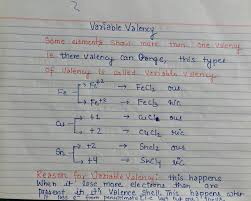 2
Variable Valency
Some elements show more than one valency
ie there valency can change, this types
of valency is called variable valency.
Fe → Fe+2 → FeCl2 ous
→ Fe+3 → FeCl3 ic
Cu → +1 → CuCl ous
→ +2 → CuCl2 ic
Sn → +2 → SnCl2 ous
→ +4 → SnCl4 ic
Reason for Variable Valency: this happens
When it lose more electrons than are
present in it's Valence Shell. This happens when